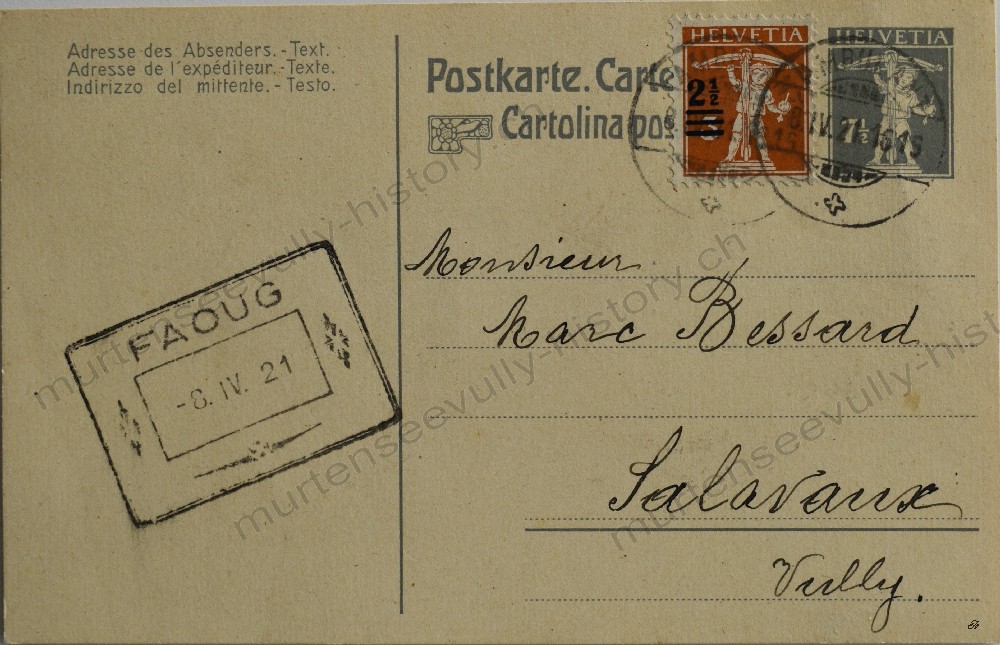 Adresse des Absenders.-Text.
Adresse de l'expéditeur.-Texte.
Indirizzo del mittente.-Testo.
Postkarte. Carte
Cartolina pos
HELVETIA
2½
HELVETIA
7½
8.IV.21.-16
Monsieur
Marc Bessard
Salavaux
Vully.
FAOUG
-8.IV.21
murtenseevully-history.ch
murtenseevully-history.ch
murtenseevully-history